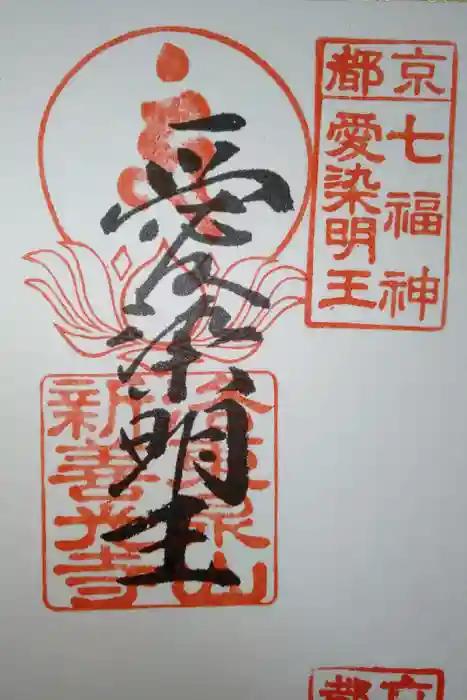 京都
七福神
愛染明王
愛染明王
洛東泉山
新善光寺